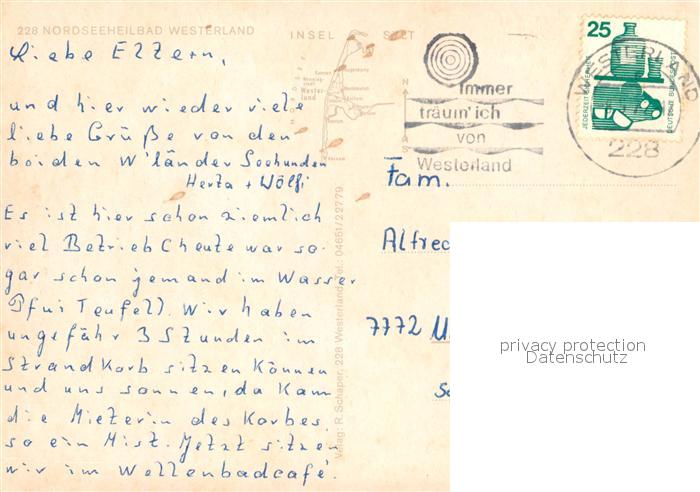 228 NORDSEEHEILBAD WESTERLAND INSEL SYLT
Liebe Eltern,
und hier wieder viele
liebe Grüße von den
beiden W'länder Seehunden
Herta + Wölfi
Es ist hier schon ziemlich
viel Betrieb (heute war so-
gar schon jemand im Wasser
Pfui Teufel). Wir haben
ungefähr 3 Stunden im
Strandkorb sitzen können
und uns sonnen, da kam
die Mieterin des Korbes.
so ein Mist. Jetzt sitzen
wir im Wellenbadcafé.
Verlag: R. Schaper, 228 Westerland, Tel.: 04651/22779
Wester-
land
N
Immer
träum' ich
von
Westerland
WESTERLAND
228
25
JEDERZEIT SICHERHEIT
DEUTSCHE BUNDESPOST
Fam.
Alfred
7772
privacy protection
Datenschutz